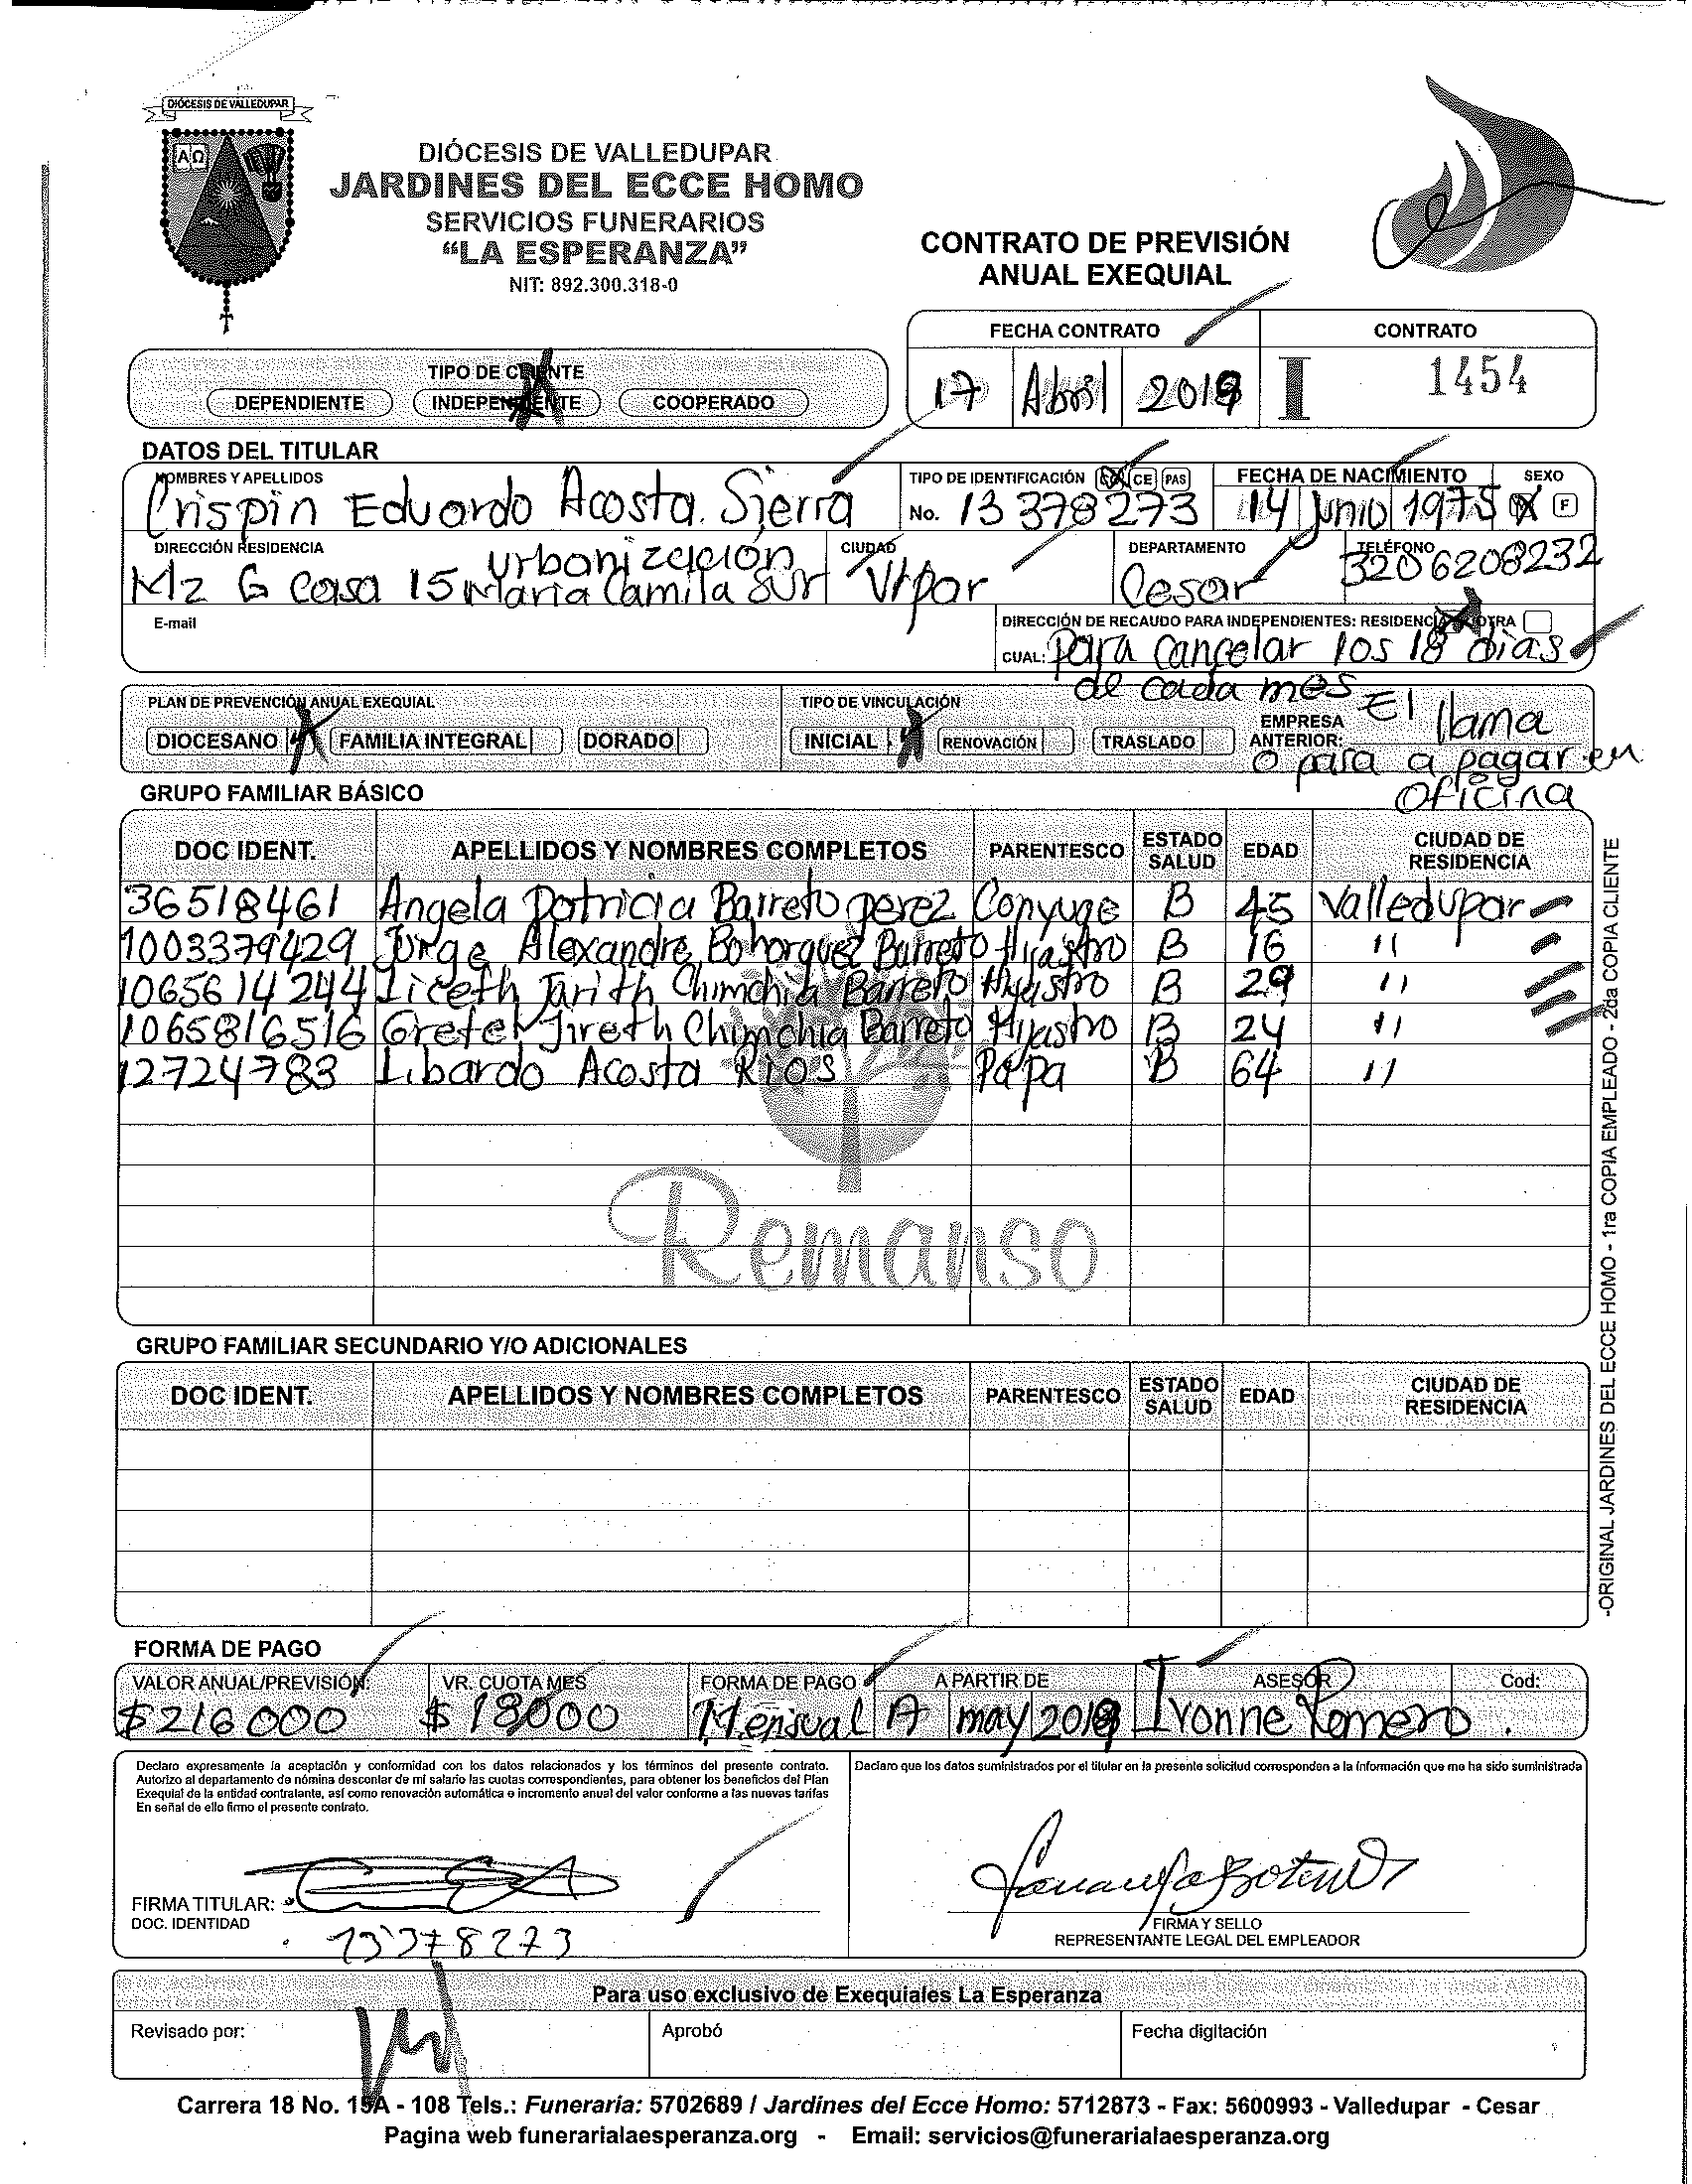 DIÓCESIS DE VALLEDUPAR
ΑΩ
DIÓCESIS DE VALLEDUPAR
JARDINES DEL ECCE HOMO
SERVICIOS FUNERARIOS
“LA ESPERANZA”
NIT: 892.300.318-0
CONTRATO DE PREVISIÓN
ANUAL EXEQUIAL
FECHA CONTRATO CONTRATO
17 Abril 2019 I 1454
TIPO DE CLIENTE
DEPENDIENTE INDEPENDIENTE COOPERADO
DATOS DEL TITULAR
NOMBRES Y APELLIDOS TIPO DE IDENTIFICACIÓN CE PAS FECHA DE NACIMIENTO SEXO
Crispin Eduardo Acosta Sierra No. 13 378273 14 Junio 1975 F
DIRECCIÓN RESIDENCIA CIUDAD DEPARTAMENTO TELÉFONO
Mz G casa 15 urbanización Maria Camila Sur V/par Cesar 3206208232
E-mail DIRECCIÓN DE RECAUDO PARA INDEPENDIENTES: RESIDENCIA OTRA
CUAL: para cancelar los 18 dias
de cada mes El llama
PLAN DE PREVENCIÓN ANUAL EXEQUIAL TIPO DE VINCULACIÓN
DIOCESANO FAMILIA INTEGRAL DORADO INICIAL RENOVACIÓN TRASLADO EMPRESA ANTERIOR:
o para a pagar en
oficina
GRUPO FAMILIAR BÁSICO
DOC IDENT. APELLIDOS Y NOMBRES COMPLETOS PARENTESCO ESTADO SALUD EDAD CIUDAD DE RESIDENCIA
36518461 Angela Patricia Barreto perez Conyuge B 45 Valledupar
1003379429 Jorge Alexandre Bohorquez Barreto Hijastro B 16 "
1065614244 Liceth Jarith Chimchia Barreto Hijastro B 29 "
1065816516 Gretel Jireth Chimchia Barreto Hijastro B 24 "
12724783 Libardo Acosta Rios Papa B 64 "
Remanso
GRUPO FAMILIAR SECUNDARIO Y/O ADICIONALES
DOC IDENT. APELLIDOS Y NOMBRES COMPLETOS PARENTESCO ESTADO SALUD EDAD CIUDAD DE RESIDENCIA
-ORIGINAL JARDINES DEL ECCE HOMO - 1ra COPIA EMPLEADO - 2da COPIA CLIENTE
FORMA DE PAGO
VALOR ANUAL/PREVISIÓN: VR. CUOTA MES FORMA DE PAGO A PARTIR DE ASESOR Cod:
$216000 $18000 Mensual A may 2019 Ivonne Romero.
Declaro expresamente la aceptación y conformidad con los datos relacionados y los términos del presente contrato.
Autorizo al departamento de nómina descontar de mi salario las cuotas correspondientes, para obtener los beneficios del Plan
Exequial de la entidad contratante, así como renovación automática e incremento anual del valor conforme a las nuevas tarifas
En señal de ello firmo el presente contrato.
Declaro que los datos suministrados por el titular en la presente solicitud corresponden a la información que me ha sido suministrada
FIRMA TITULAR:
DOC. IDENTIDAD
13378273
FIRMA Y SELLO
REPRESENTANTE LEGAL DEL EMPLEADOR
Para uso exclusivo de Exequiales La Esperanza
Revisado por: Aprobó Fecha digitación
Carrera 18 No. 15A - 108 Tels.: Funeraria: 5702689 / Jardines del Ecce Homo: 5712873 - Fax: 5600993 - Valledupar - Cesar
Pagina web funerarialaesperanza.org - Email: servicios@funerarialaesperanza.org